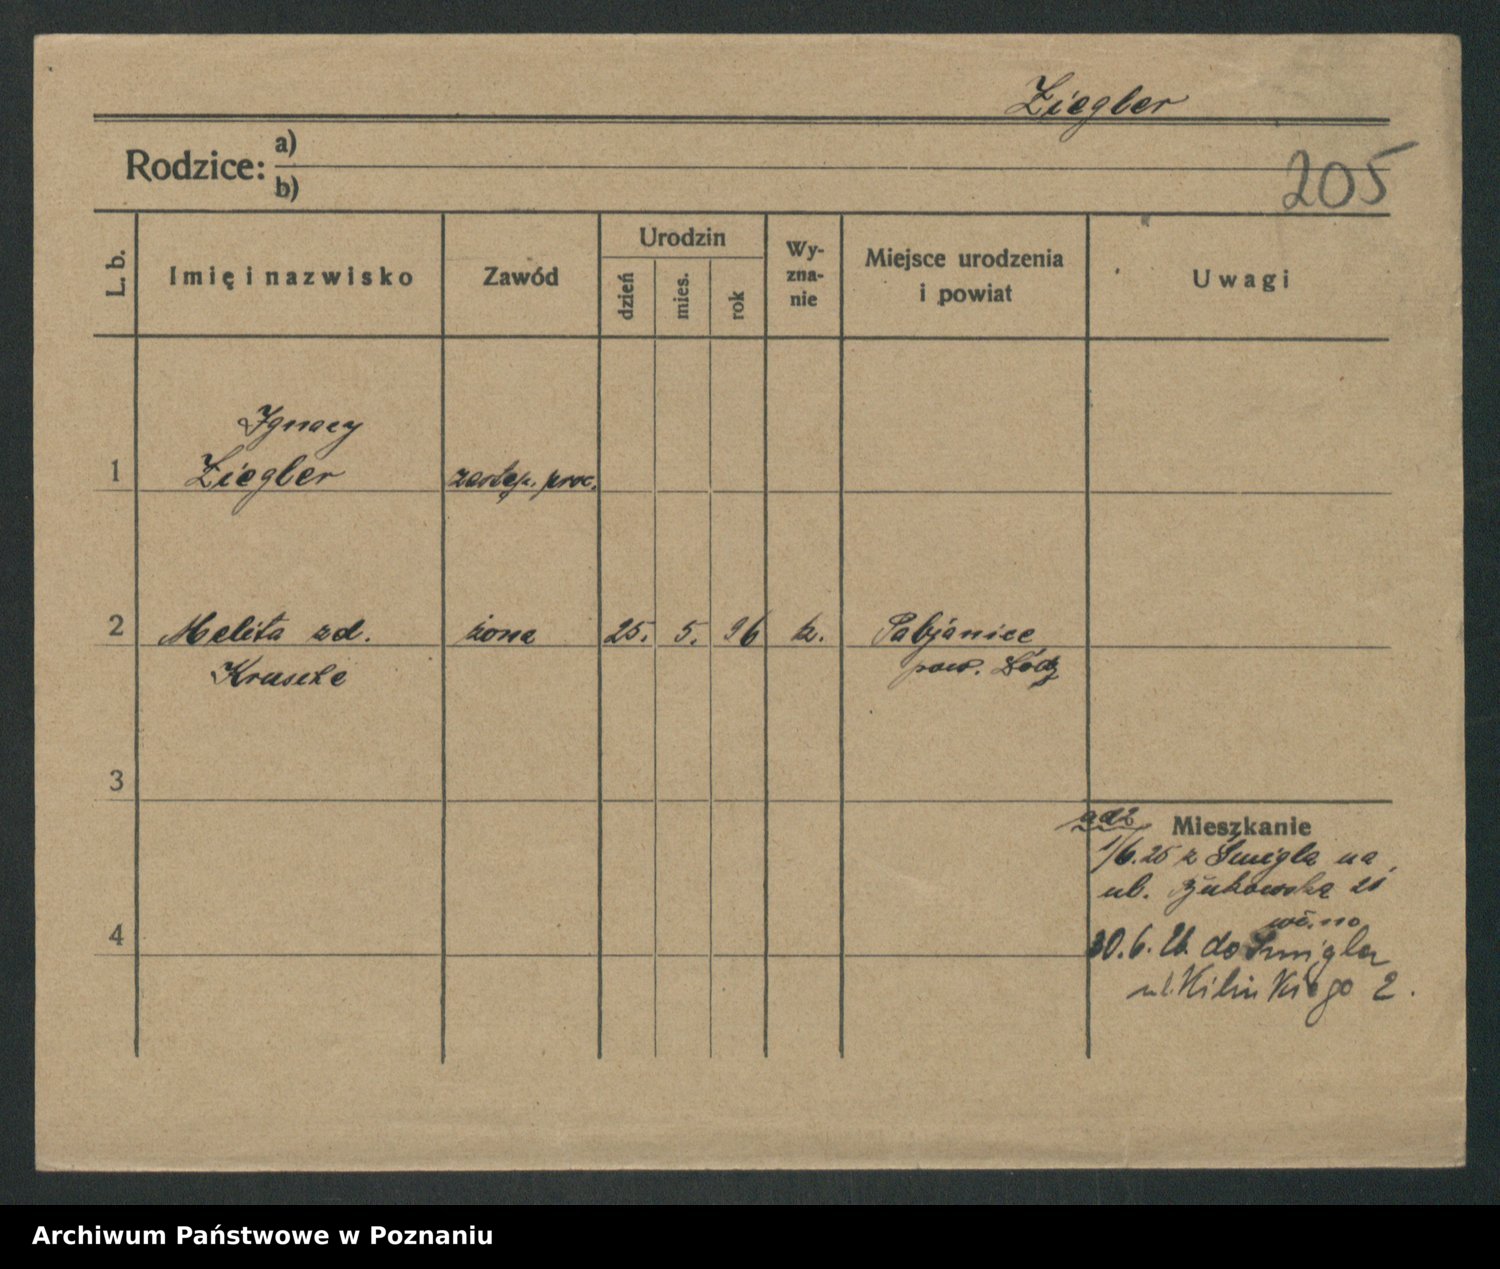 Ziegler
Rodzice: a)
b)
205
L. b.
Imię i nazwisko
Zawód
Urodzin
dzień
mies.
rok
Wy-
zna-
nie
Miejsce urodzenia
i powiat
Uwagi
Ignacy
1 Ziegler zastęp. proc.
2 Melita zd. żona 25. 5. 96 k. Pabjanice
Krusche pow. Łódź
3
Mieszkanie
1/6.25 z Śmigla na
ul. 21
4
30.6. do Śmigla
ul. Kilińskiego 2.
Archiwum Państwowe w Poznaniu